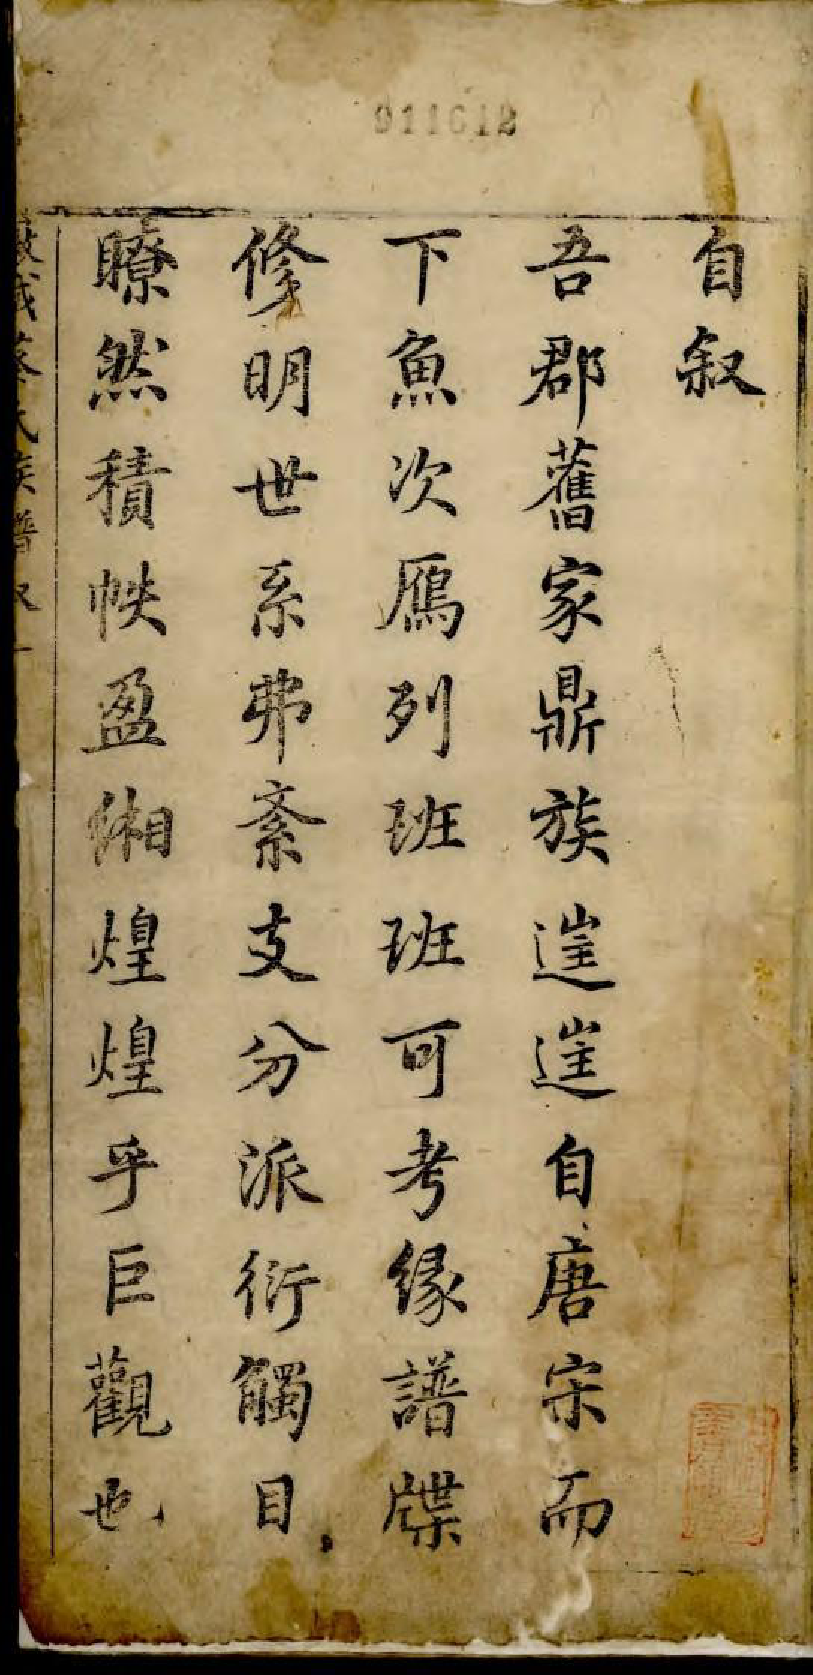 911612
自叙
吾郡舊家鼎族逞逞自唐宋而
下魚次鴈列班班可考緣譜牒
修明世系弗紊支分派衍觸目
瞭然積帙盈緗煌煌乎巨觀也
氏族譜叙一